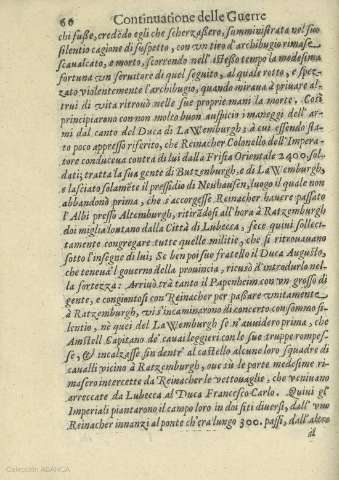 66 Continuatione delle Guerre
chi fuße, credẽdo egli che scherzaßero, sumministrata nel suo
silentio cagione di suspetto, con vn tiro d'archibugio rimase
scaualcato, e morto, scorrendo nell'istesso tempo la medesima
fortuna vn seruitore di quel seguito, al quale rotto, e spez-
zato violentemente l'archibugio, quando miraua à priuare al-
trui di vita ritrouò nelle sue proprie mani la morte. Così
principiarono con non molto buon auspicio i maneggi dell'ar
mi dal canto del Duca di LaWemburgh: à cui essendo sta-
to poco appresso riferito, che Reinacher Colonello dell'Impera-
tore conduceua contra di lui dalla Frisia Orientale 2400. sol-
dati; tratta la sua gente di Butzenburgh, e di LaWemburgh,
e lasciato solamẽte il pressidio di Neuhausen, luogo il quale non
abbandonò prima, che s'accorgesse Reinacher hauere passato
l'Albi presso Altemburgh, ritiradosi all'hora à Ratzemburgh
doi miglia lontano dalla Città di Lubecca; fece quiui solleci-
tamente congregare tutte quelle militie, che si ritrouauano
sotto l'insegne di lui; Se ben poi suo fratello il Duca Augusto,
che teneua'l gouerno della prouincia, ricusò d'introdurlo nel-
la fortezza: Arriuò trà tanto il Papenheim con vn grosso di
gente, e congiontosi con Reinacher per paßare vnitamente
à Ratzemburgh, vi s'incaminarono di concerto con sommo si-
lentio, nè quei del LaWemburgh se n'auuidero prima, che
Amstell Capitano de' cauaileggieri con le sue truppe rompes-
se, & incalzasse sin dentr' al castello alcune loro squadre di
caualli vicino à Ratzemburgh, oue sù le porte medesime ri-
masero intercette da Reinacher le vettouaglie, che veniuano
arreccate da Lubecca al Duca Francesco-Carlo. Quini gl'
Imperiali piantarono il campo loro in doi siti diuersi, dall' vno
Reinacher innanzi al ponte ch'era lungo 300. passi, dall'altro
il
Colección ABANCA